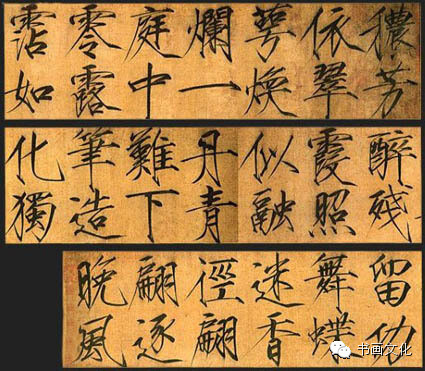 穠芳
依翠
萼煥
爛一
庭中
零露
霑如
醉残
霞照
似融
丹青
難下
筆造
化獨
留功
舞蝶
迷香
徑翩
翩逐
晚風
书画文化